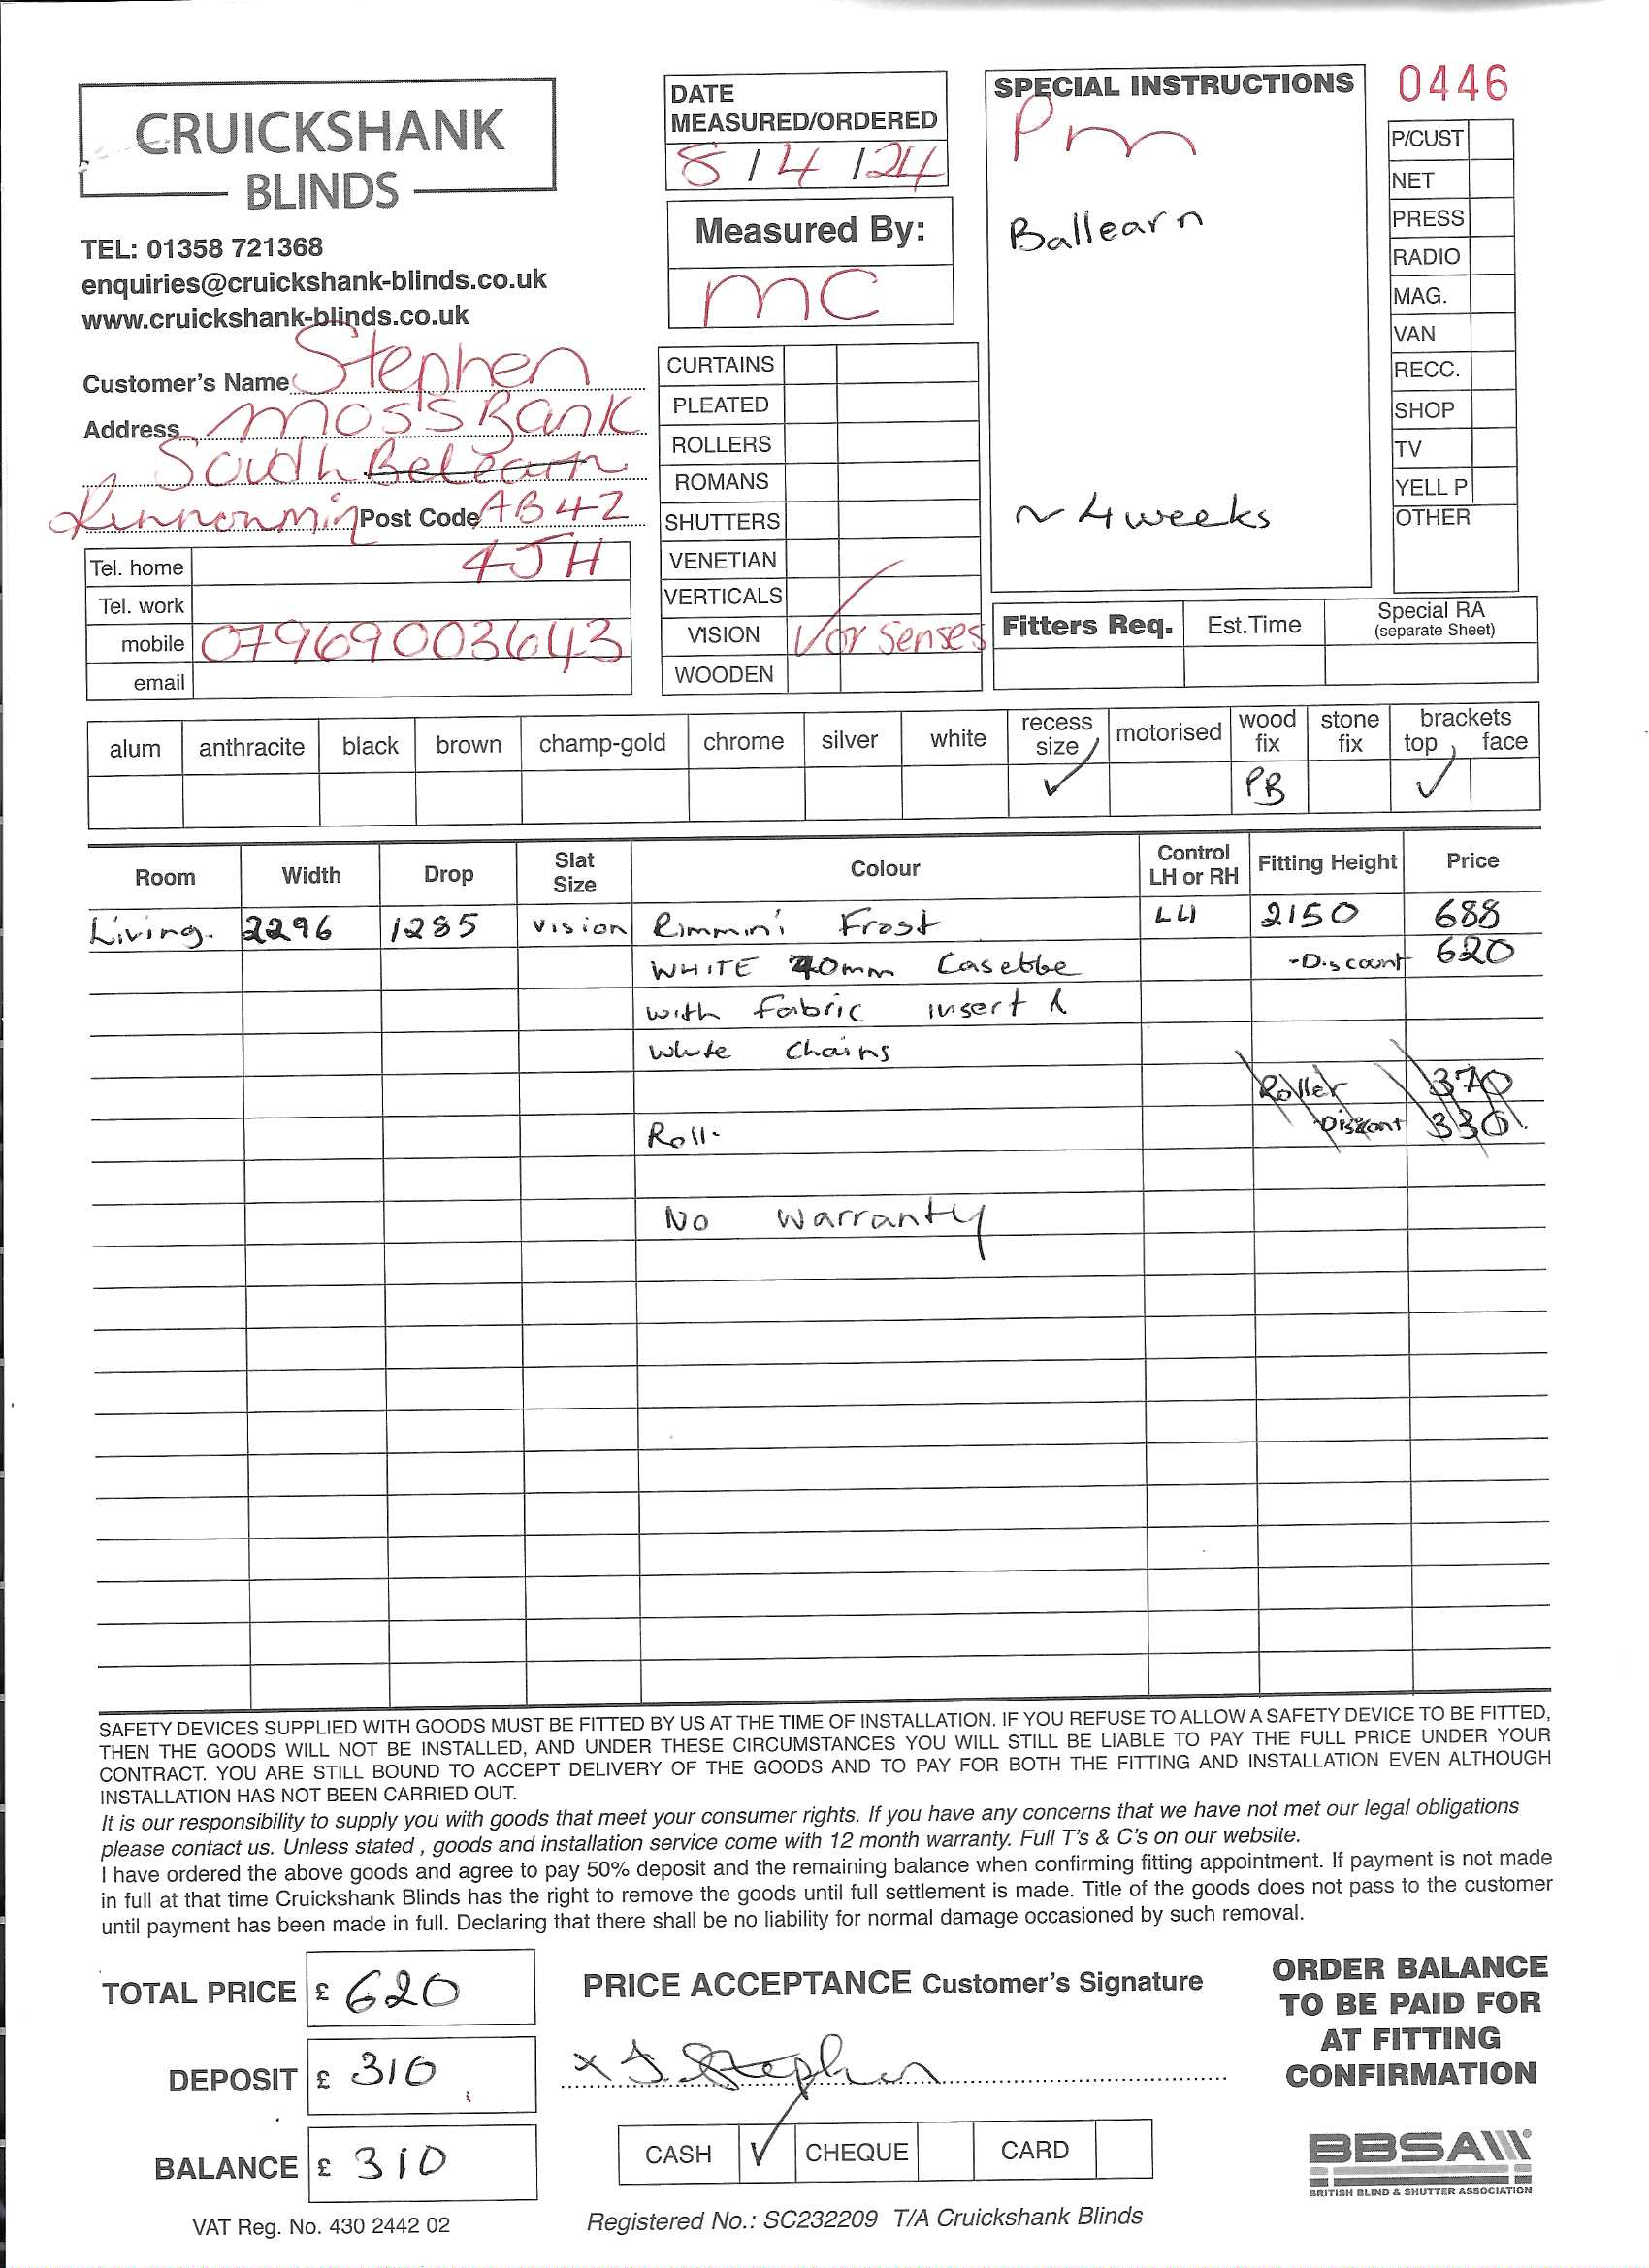 CRUICKSHANK
BLINDS
TEL: 01358 721368
enquiries@cruickshank-blinds.co.uk
www.cruickshank-blinds.co.uk
Customer's Name Stephen
Address Moss Bank
South Belearn
Post Code AB42
4JH
Tel. home
Tel. work
mobile 07969003643
email
DATE
MEASURED/ORDERED
8/4/24
Measured By:
MC
CURTAINS
PLEATED
ROLLERS
ROMANS
SHUTTERS
VENETIAN
VERTICALS
VISION ✓ or Senses
WOODEN
SPECIAL INSTRUCTIONS
Pm
Ballearn
~ 4 weeks
0446
P/CUST
NET
PRESS
RADIO
MAG.
VAN
RECC.
SHOP
TV
YELL P
OTHER
Fitters Req. Est.Time Special RA
(separate Sheet)
alum anthracite black brown champ-gold chrome silver white recess size motorised wood fix stone fix brackets top face
✓ PB ✓
Room Width Drop Slat Size Colour Control LH or RH Fitting Height Price
Living. 2296 1285 Vision Rimmini Frost LH 2150 688
WHITE 40mm Casette -Discount 620
with Fabric insert &
White Chains
Roller 370
Roll- Discount 330
No Warranty
SAFETY DEVICES SUPPLIED WITH GOODS MUST BE FITTED BY US AT THE TIME OF INSTALLATION. IF YOU REFUSE TO ALLOW A SAFETY DEVICE TO BE FITTED,
THEN THE GOODS WILL NOT BE INSTALLED, AND UNDER THESE CIRCUMSTANCES YOU WILL STILL BE LIABLE TO PAY THE FULL PRICE UNDER YOUR
CONTRACT. YOU ARE STILL BOUND TO ACCEPT DELIVERY OF THE GOODS AND TO PAY FOR BOTH THE FITTING AND INSTALLATION EVEN ALTHOUGH
INSTALLATION HAS NOT BEEN CARRIED OUT.
It is our responsibility to supply you with goods that meet your consumer rights. If you have any concerns that we have not met our legal obligations
please contact us. Unless stated , goods and installation service come with 12 month warranty. Full T's & C's on our website.
I have ordered the above goods and agree to pay 50% deposit and the remaining balance when confirming fitting appointment. If payment is not made
in full at that time Cruickshank Blinds has the right to remove the goods until full settlement is made. Title of the goods does not pass to the customer
until payment has been made in full. Declaring that there shall be no liability for normal damage occasioned by such removal.
TOTAL PRICE £ 620
DEPOSIT £ 310
BALANCE £ 310
VAT Reg. No. 430 2442 02
PRICE ACCEPTANCE Customer's Signature
x J. Stephen
CASH ✓ CHEQUE CARD
Registered No.: SC232209 T/A Cruickshank Blinds
ORDER BALANCE
TO BE PAID FOR
AT FITTING
CONFIRMATION
BBSA
BRITISH BLIND & SHUTTER ASSOCIATION